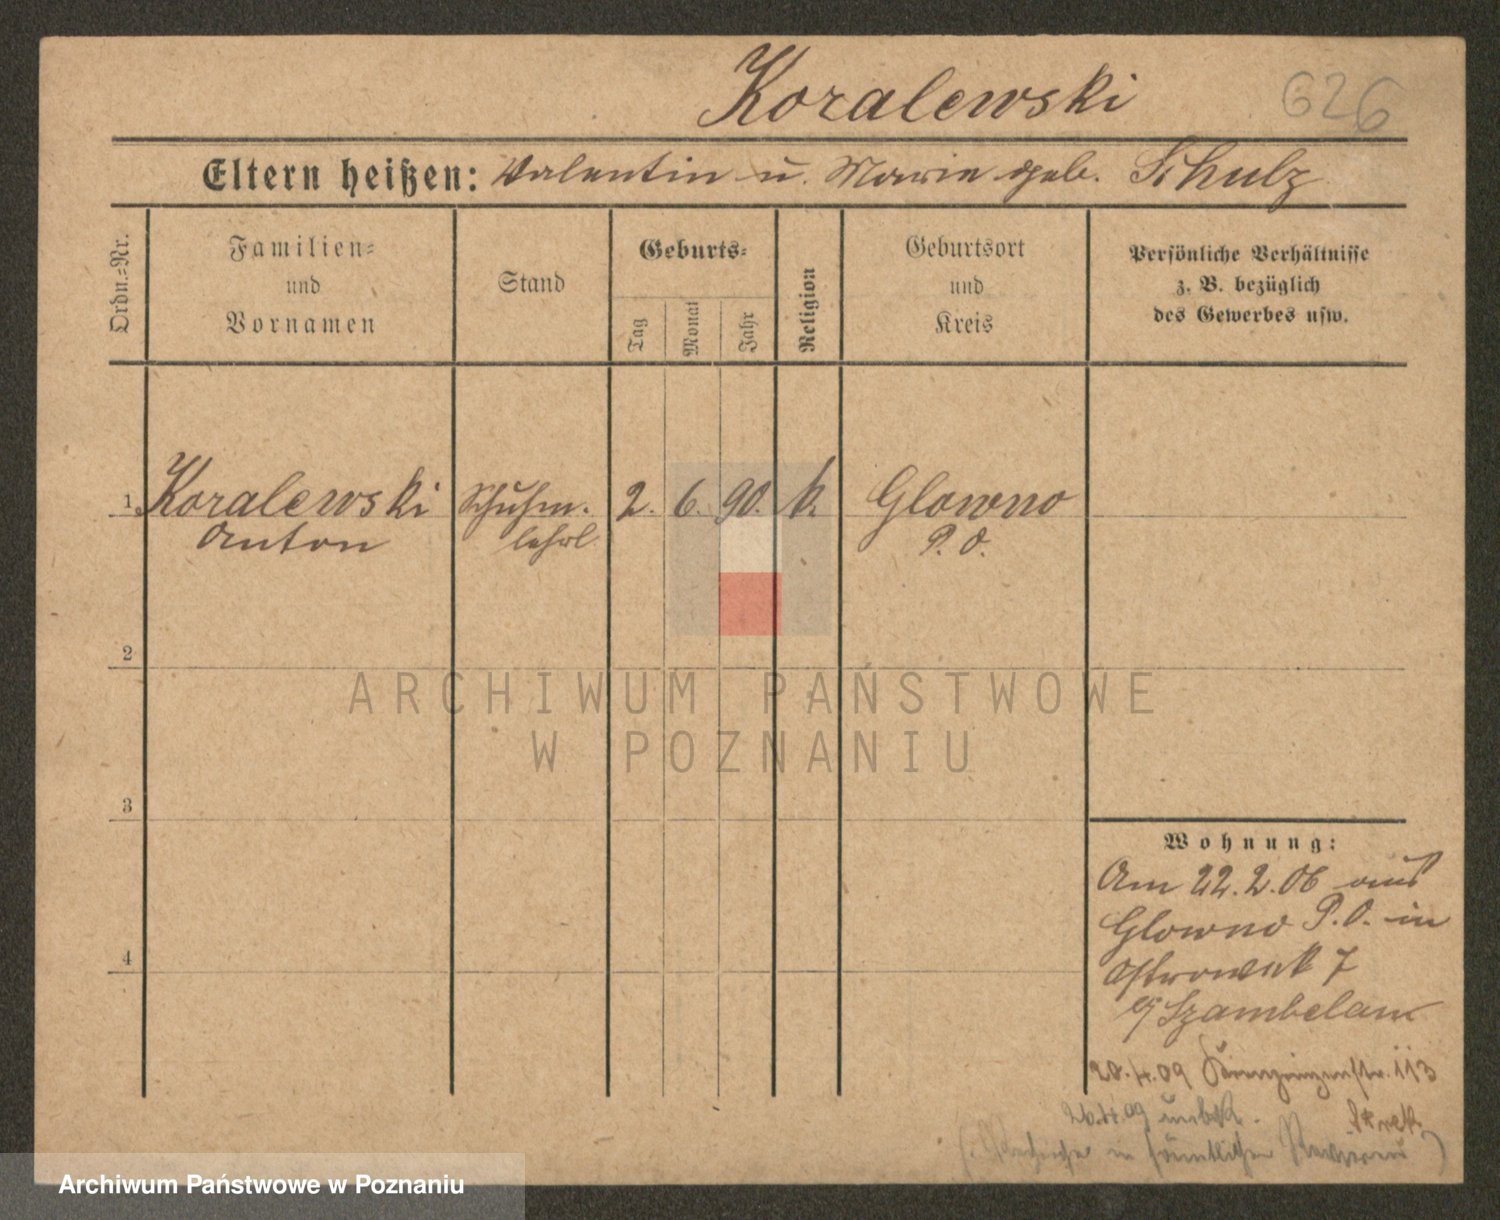 Koralewski 626
Eltern heißen: Valentin u. Marie geb. Schulz
Ordn.=Nr.
Familien=
und
Vornamen
Stand
Geburts=
Tag
Monat
Jahr
Religion
Geburtsort
und
Kreis
Persönliche Verhältnisse
z. B. bezüglich
des Gewerbes usw.
1 Koralewski Schuhm. 2. 6. 90. k. Glowno
Anton lehrl. P. O.
2
ARCHIWUM PAŃSTWOWE
W POZNANIU
3
4
Wohnung:
Am 22.2.06 aus
Glowno P.O. in
Ostrowek 7
b/ Szambelan
20.4.09 113
26.4.09 unbek.
in sämtlichen Revieren)
Archiwum Państwowe w Poznaniu